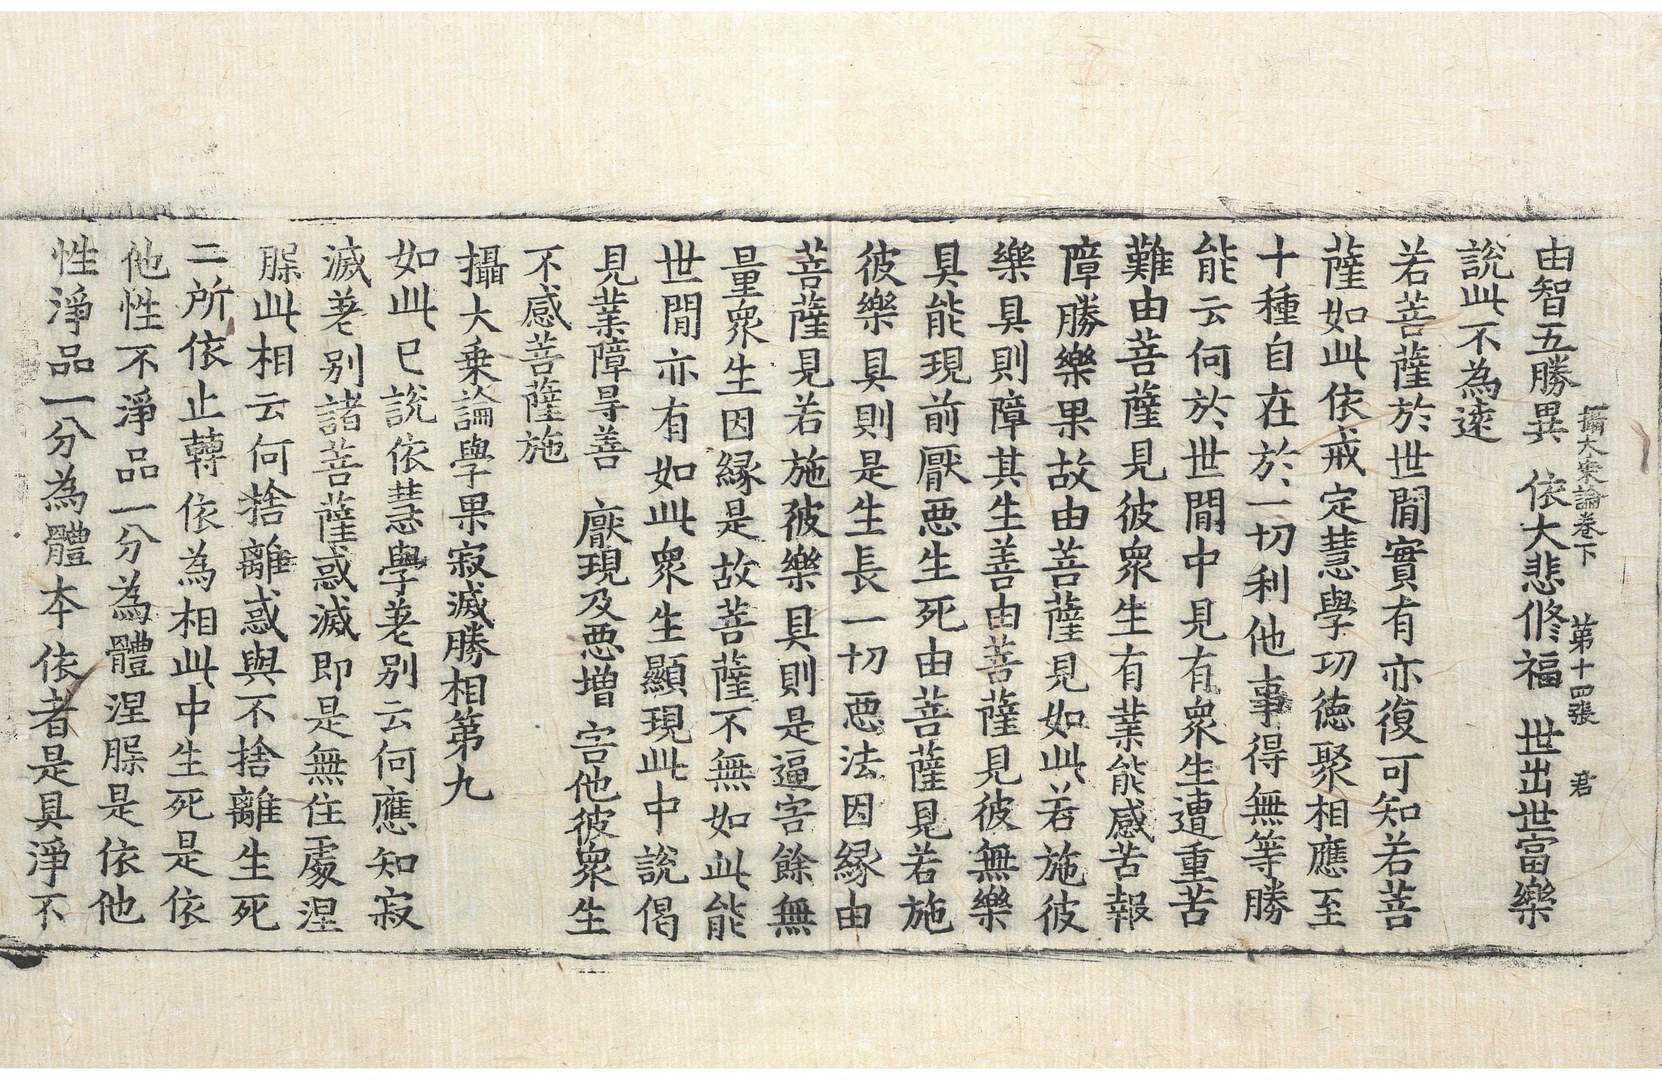 攝大乗論卷下　第十四張　君
由智五勝異　依大悲修福　世出世富樂
說此不為遠
若菩薩於世間實有亦復可知若菩
薩如此依戒定慧學功德聚相應至
十種自在於一切利他事得無等勝
能云何於世間中見有衆生遭重苦
難由菩薩見彼衆生有業能感苦報
障勝樂果故由菩薩見如此若施彼
樂具則障其生善由菩薩見彼無樂
具能現前厭惡生死由菩薩見若施
彼樂具則是生長一切惡法因縁由
菩薩見若施彼樂具則是逼害餘無
量衆生因縁是故菩薩不無如此能
世間亦有如此衆生顯現此中說偈
見業障㝵善　厭現及惡增　害他彼衆生
不感菩薩施
攝大乗論學果寂滅勝相第九
如此已說依慧學差別云何應知寂
滅差別諸菩薩惑滅即是無住處涅
槃此相云何捨離惑與不捨離生死
二所依止轉依為相此中生死是依
他性不淨品一分為體涅槃是依他
性淨品一分為體本依者是具淨不